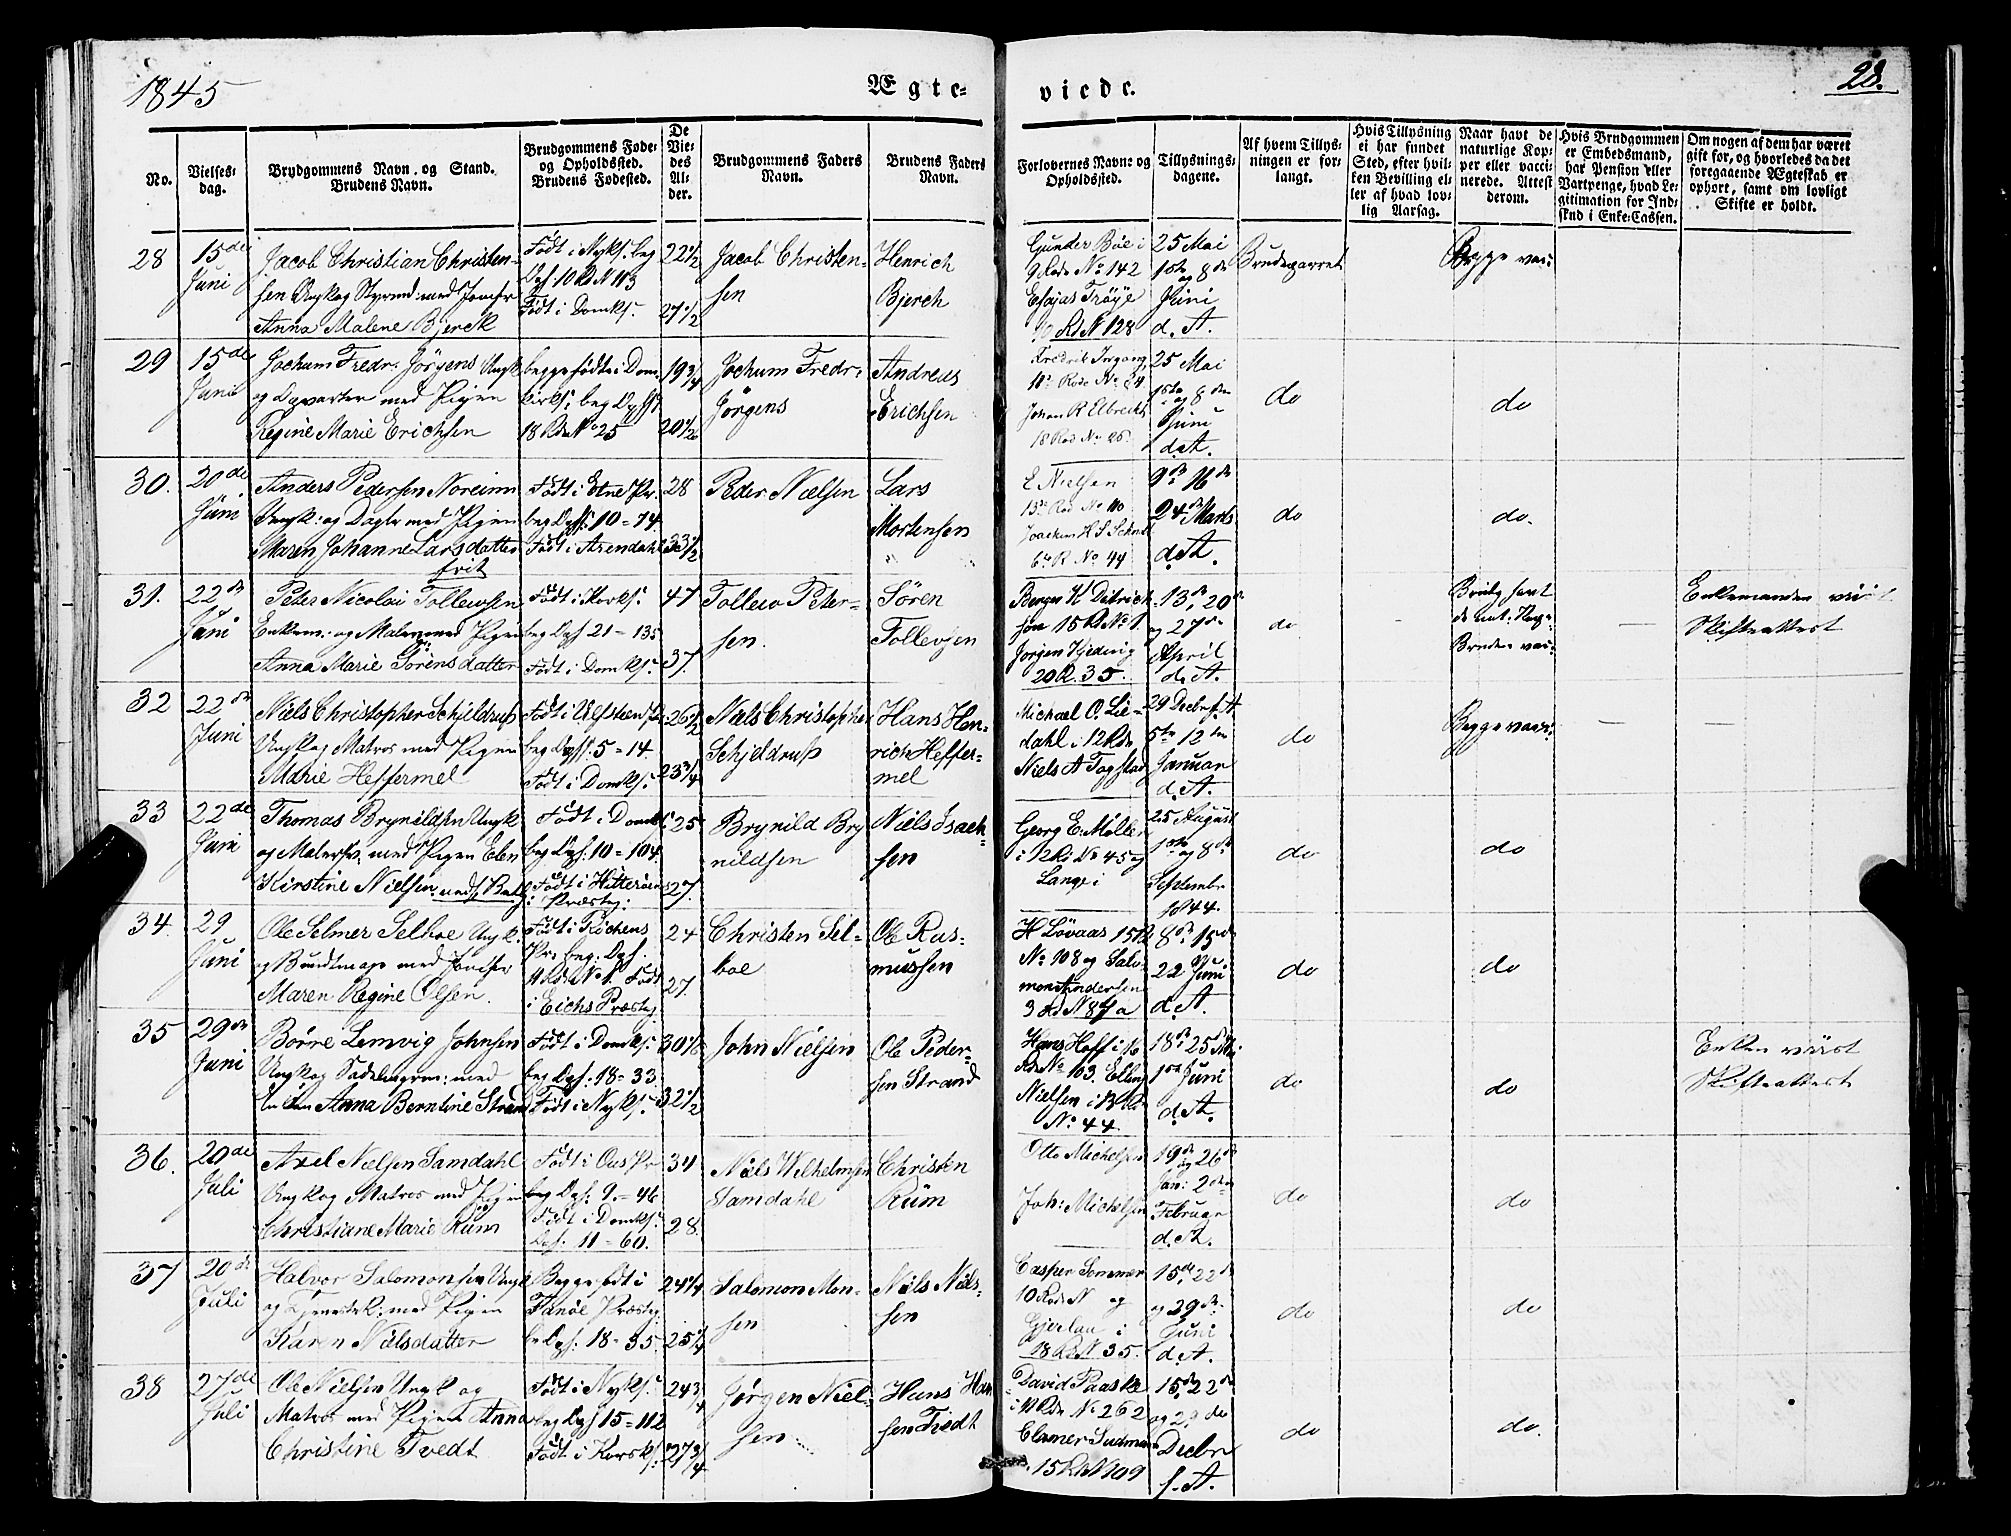 1845
Ægte-
viede.
28.
No.
Vielses-
dag.
Brydgommens Navn og Stand.
Brudens Navn.
Brudgommens Føde-
og Opholdssted.
Brudens Fødested.
De
Vie-
des
Al-
der.
Brudgommens Faders
Navn.
Brudens Faders
Navn.
Forlovernes Navne og
Opholdssted.
Tillysnings-
dagene.
Af hvem Tillys-
ningen er for-
langt.
Hvis Tillysning
ei har fundet
Sted, efter hvil-
ken Bevilling el-
ler af hvad lov-
lig Aarsag.
Naar havt de
naturlige Kop-
per eller vacci-
nerede. Attest
derom.
Hvis Brudgommen
er Embedsmand,
har Pension eller
Vartpenge, hvad Le-
gitimation for Ind-
skud i Enke-Cassen.
Om nogen af dem har været
gift før, og hvorledes da det
foregaaende Ægteskab er
ophørt, samt om lovligt
Skifte er holdt.
28
15de
Juni
Jacob Christian Christen-
sen Ungk og Styrmd: med Jomfr
Anna Malene Bjerck
Født i Nyks. beg
Dgs 10 Rd N 113
Født i Domks.
22 1/2
27 1/2
Jacob Christen-
sen
Henrich
Bjerck
Gunder Böe i
9 Rode No 142
Esajas Trøye
Rd N 128
25 Mai
1ste og 8de
Juni
d. A.
Brudeparret
Begge vac:
29
15de
Juni
Jochum Fredr. Jörgens Ungk
og Opvarter med Pigen
Regine Marie Erichsen
begge fødte i Dom-
kirks: beg Dgs
18 Rd No 25
19 3/4
20 1/2
Jochum Fredr.
Jörgens
Andreas
Erichsen
Fredrik Ingong
18 Rode No 24
Johan R Elbrecht
18 Rod No 26
25 Mai
1ste og 8de
Juni
d. A.
do
do
30.
20de
Juni
Anders Pedersen Noreim
Ungk: og Dagl: med Pigen
Maren Johanne Larsdatter
Født i Etne Pr.
beg Dgs: 10 = 74.
Født i Arendahl
28
33 1/2
Peder Nielsen
Lars
Mortensen
E Nielsen
15de Rod No 110
Joachim H S
6te R No 44
9de 16de
24de Marts
d. A.
do
do.
31.
22de
Juni
Peter Nicolai Tollewsen
Enkem: og Maler med Pigen
Anna Marie Sörensdatter
Født i Korks.
beg Dgs 21 = 135
Født i Domks.
47
37.
Tollew Peter-
sen.
Sören
Tollevsen
Berger H Ditrich-
sen 15 Rd No 1.
Jörgen Hedevig
20 R. 35.
13de, 20de
og 27de
April
d. A.
do
Brudg havt
de nat: Kop:
Bruden vac:
Enkemanden viist
Skifteattest
32
22de
Juni
Niels Christopher Schjeldrup
Ungk og Matros med Pigen
Marie Heffermel
Født i Ulfsteen Pr
beg Dgs. 5 = 14.
Født i Domks.
26 1/2
23 3/4
Niels Christopher
Schjeldrup
Hans Hen-
rich Heffer-
mel
Michael O. Lie-
dahl i 12 Rde
Niels A Togstad
29 Decbr f. A
5te 12te
Januar
d. A.
do
Begge vac:
33
22de
Juni
Thomas Brynildsen Ungk
og Malersv. med Pigen Elen
Kirstine Nielsen
Født i Domks
beg Dgs: 10 = 104.
Født i Hitterøens
Præsteg:
25
27.
Brynild Bry-
nildsen
Niels Isach-
sen
Georg E. Møller
i 12 Rd No 45 og
Lange i
25 August
1ste og 8de
Septembr
1844.
do
do
34.
29
Juni
Ole Selmer Selboe Ungk:
og Bundtmager med Jomfru
Maren Regine Olsen.
Født i Kichens
Pr: beg: Dgs.
Rd. No 1. Født
i Eichs Præsteg.
24
27.
Christen Sel-
boe
Ole Ras-
mussen
H Lövaas 15 R
No 108 og Salo-
mon Andersen
3 Rd N 87 a
8de 15de
22 Juni
d. A.
do
do
35
29de
Juni
Börre Lemvig Johnsen
Ungk og Sadelmagrm: med
Enken Anna Berntine Strand
Født i Domks.
beg Dgs: 18 = 33.
Født i Nyks.
30 1/8
32 1/2
John Nielsen
Ole Peder-
sen Strand
Hans Hoff i 16
Rd No 163. Elling
Nielsen i 13 Rd
No 44.
18de 25 Mai
1ste Juni
d. A.
do
do
Enken viist
Skifteattest
36.
20de
Juli
Axel Nielsen Samdahl
Ungk og Matros med Pigen
Christiane Marie Rüm
Født i Ous Pr
beg Dgs: 9. = 46
Født i Domks.
Dgs: 11 = 60.
34
28.
Niels Wilhelmsen
Samdahl
Christen
Rüm
Otto Michelsen
Joh: Michelsen
19de og 26de
Jan: 2den
Februar
d. A.
do
do
37
20de
Juli
Halvor Salomonsen Ungk
og Tjenestek: med Pigen
Karen Nielsdatter
Begge født i
Fanöe Præsteg
beg Dgs: 18 = 35.
24 1/4
25 1/4
Salomon Mon-
sen
Niels Niels-
sen
Casper Sommer
10 Rode N og
Gjerlau i
18 Rd N. 35.
15de, 22de
og 29de
Juni
d. A.
do
do
38
27de
Juli
Ole Nielsen Ungk og
Matros med Pigen Anna
Christine Tvedt
Født i Nyks.
beg Dgs 15 = 112
Født i Korsks.
24 3/4
27 3/4
Jørgen Niel-
sen
Hans Han-
sen Tvedt
David Paaske
i 11 Rde No 262
Elamer Sudmann
15 Rd N 109
15de 22de
og 29de
Decbr
f. A.
do
do.